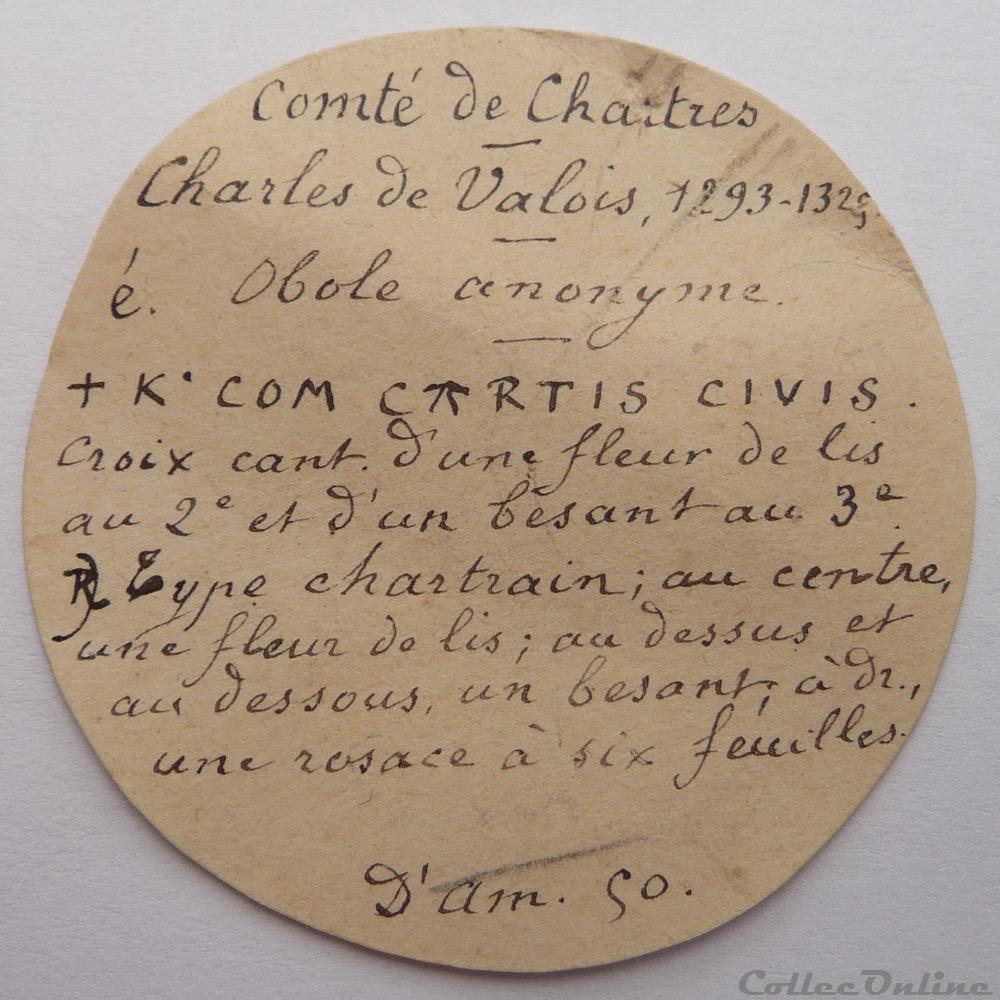 Comté de Chartres
Charles de Valois, 1293-1325
é. Obole anonyme.
+ K• COM CARTIS CIVIS.
Croix cant. d'une fleur de lis
au 2e et d'un besant au 3e.
R Type chartrain; au centre,
une fleur de lis; au dessus et
au dessous, un besant; à dr.,
une rosace à six feuilles.
D'am. 50.
CollecOnline